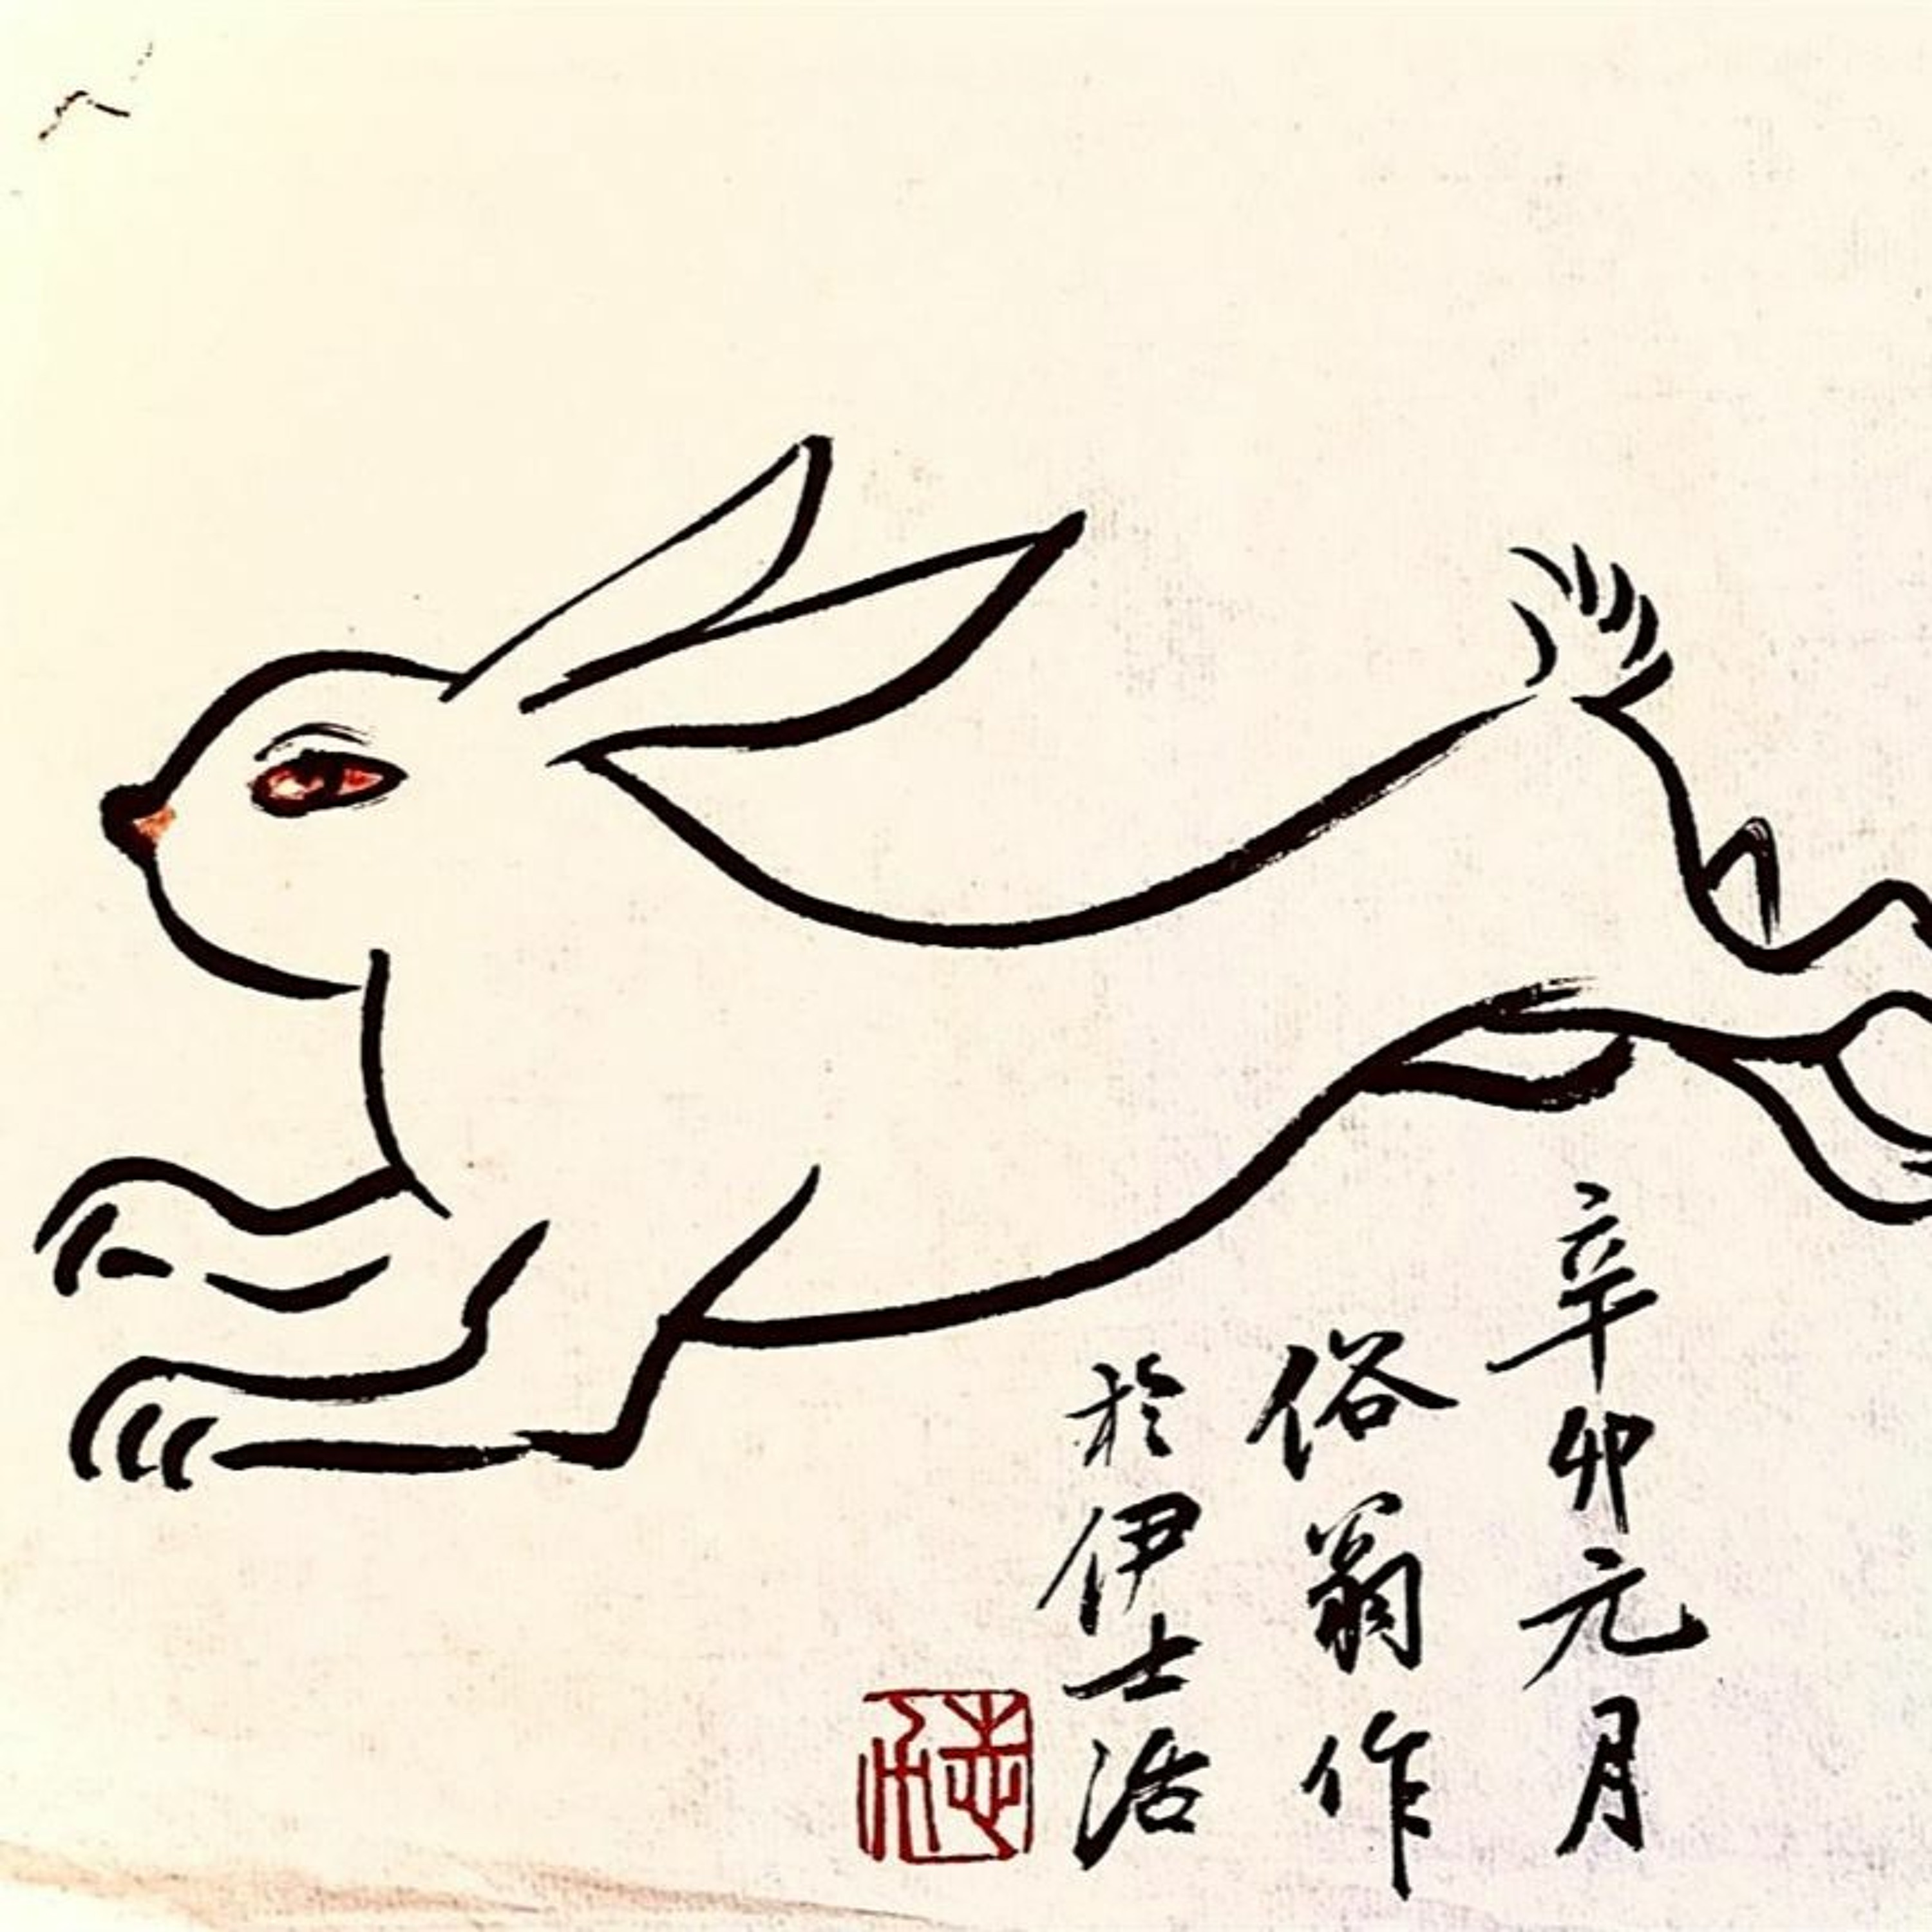 辛卯元月
俗翁作
於伊士活